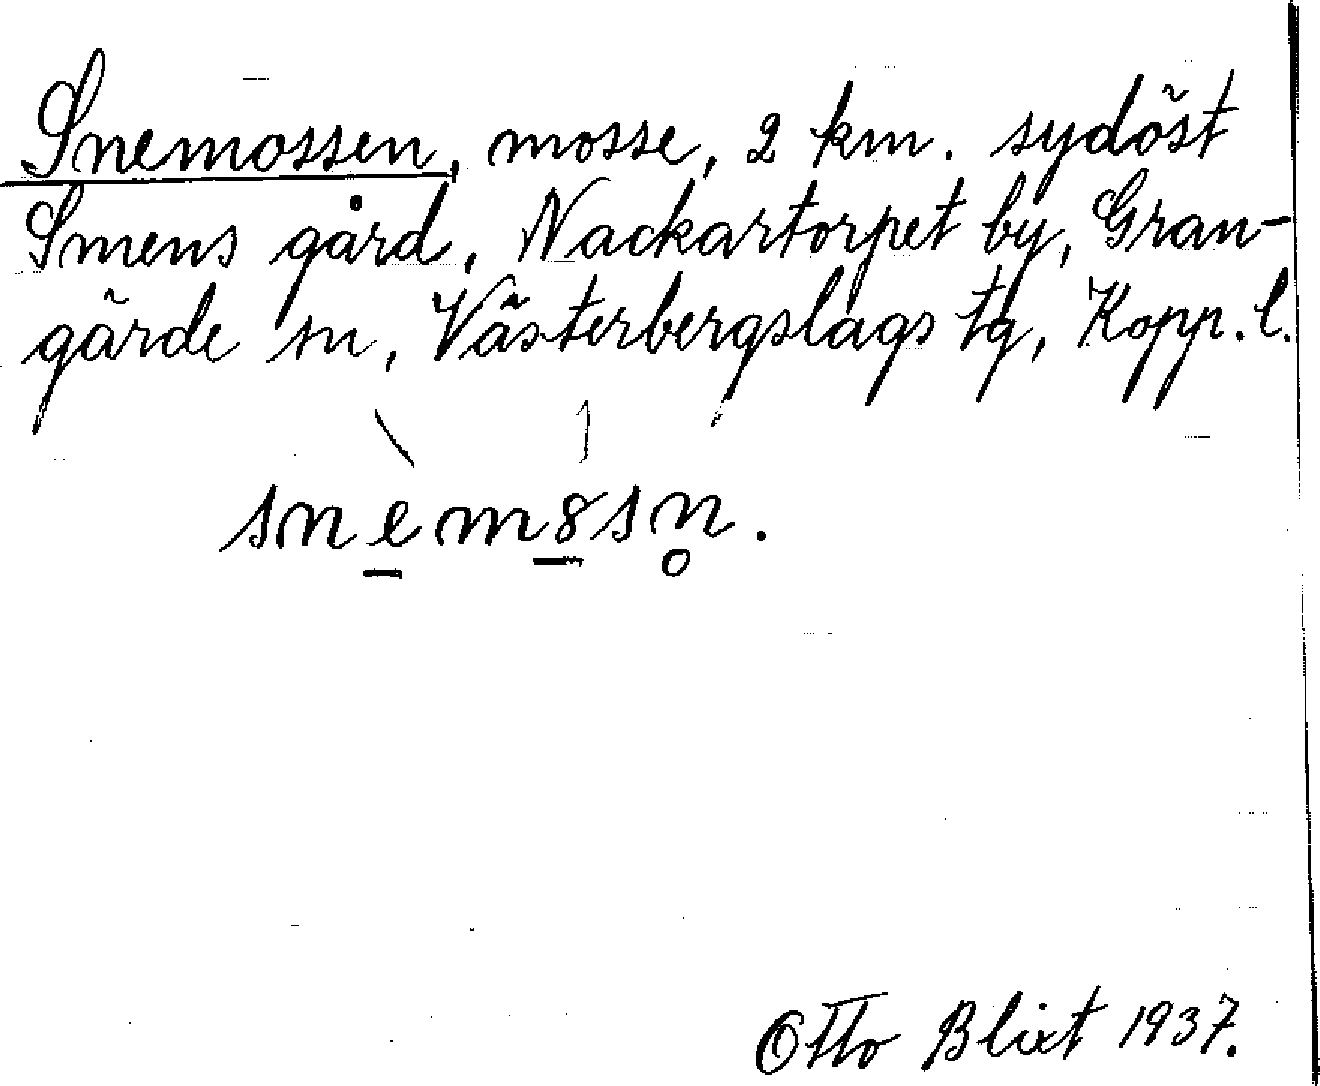 Snemossen, mosse, 2 km. sydöst
Smens gård, Nackartorpet by, Gran-
gärde sn, Västerbergslags tg, Kopp. l.
snemȣsn̥.
Otto Blixt 1937.